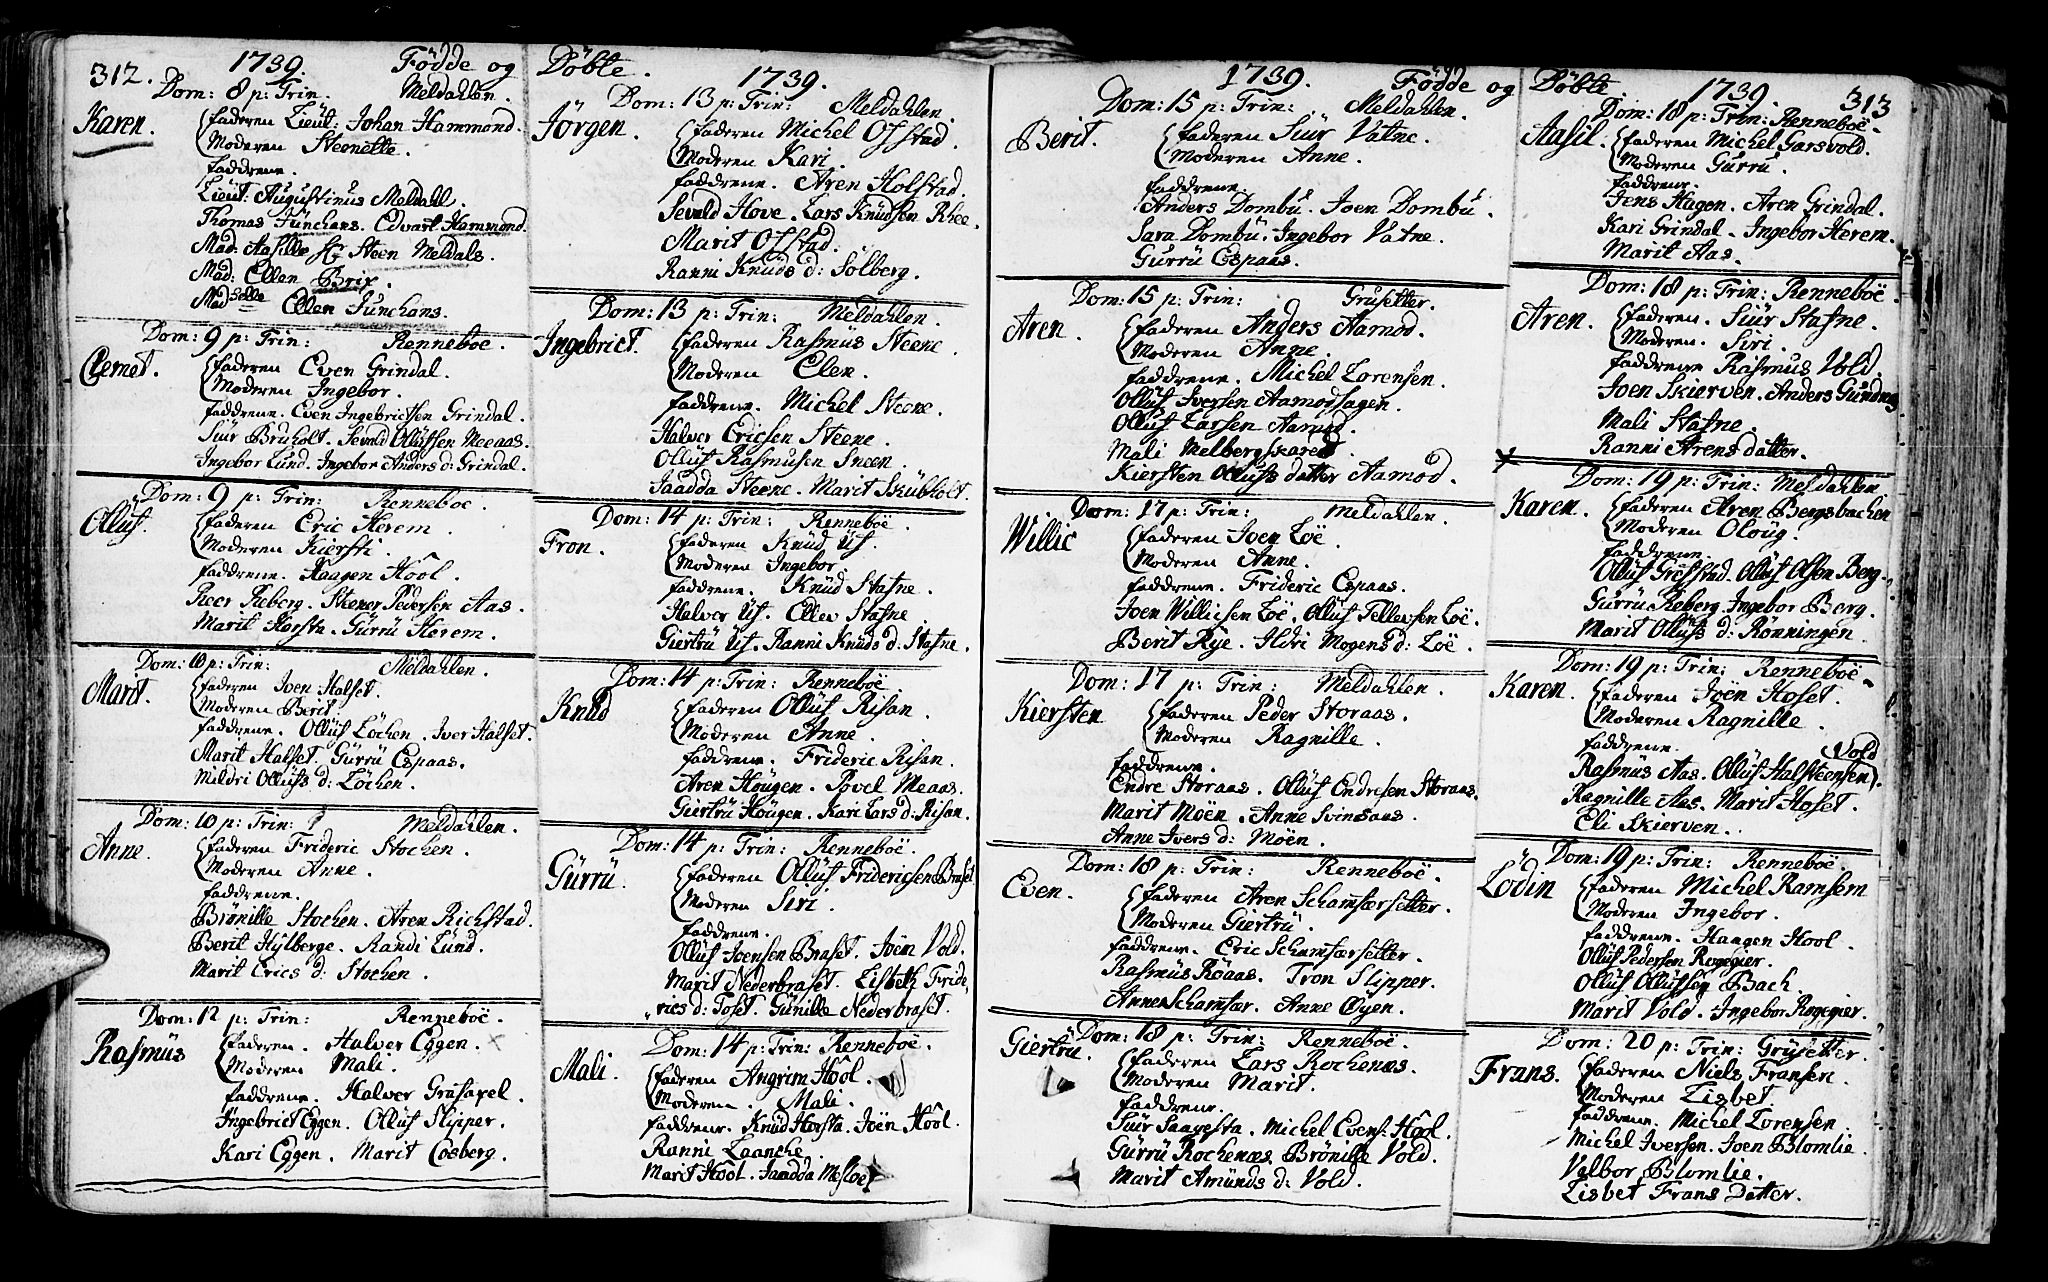 312. 1739. Födde og Döbte. 1739.
Dom: 8 p: Trin. Meldahlen.
Karen. faderen Lieut: Johan Hammond.
Moderen Steenette.
faddrene.
Lieut: Augustinus Meldahl.
Thomas Junchans. Edvart Hammond.
Mad: Aasille Sl Steen Meldals.
Mad: Ellen Brix.
Madselle Ellen Junchans.
Dom: 9 p: Trin: Renneboe.
Clemet. faderen Even Grindal.
Moderen Ingebor.
faddrene. Even Ingebrictsen Grindal.
Siür Bruholt. Sevald Ollüfsen Meeaas.
Ingebor Lund. Ingebor Anders d: Grindal.
Dom: 9 p: Trin: Renneboe.
Ollüf. faderen Eric Herem
Moderen Kiersti.
faddrene. Haagen Hool.
Peer Reberg. Steener Pedersen Aas.
Marit Horsta. Gürrü Herem.
Dom: 10 p: Trin: Meldahlen.
Marit. faderen Joen Halset.
Moderen Berit.
faddrene. Ollüf Löchen. Iver Halset.
Marit Halset. Gürrü Espaas.
Mildri Ollüfs d: Löchen.
Dom: 10 p: Trin: Meldahlen.
Anne. faderen Frideric Stochen.
Moderen Anne.
faddrene.
Brönille Stochen. Aren Richstad.
Berit Hylberge. Randi Lund.
Marit Erics d: Stochen.
Dom: 12 p: Trin: Renneboë.
Rasmüs faderen. Halver Eggen.
Moderen Mali.
faddrene. Halver Gräsavel.
Ingebrict Eggen. Ollüf Slipper.
Kari Eggen. Marit Cosberg.
Dom: 13 p: Trin: Meldahlen.
Jörgen. faderen Michel Ofstad.
Moderen Kari.
faddrene. Aren Holstad.
Sevald Hove. Lars Knüdsen Rhee.
Marit Ofstad.
Ranni Knüds d: Solberg.
Dom: 13 p: Trin: Meldahlen.
Ingebrict. faderen Rasmüs Steene.
Moderen Elen.
faddrene. Michel Steene.
Halver Ericsen Steene.
Ollüf Rasmusen Sneen.
Jaadda Steene. Marit Skübholt.
Dom: 14 p: Trin: Renneboë.
Tron. faderen Knüd Üf.
Moderen Ingebor.
faddrene. Knüd Stafne.
Halver Üf. Ellev Stafne.
Giertrü Üf. Ranni Knüds d: Stafne.
Dom: 14 p: Trin: Renneboë
Knüd faderen Ollüf Risan.
Moderen Anne.
faddrene. Frideric Risan.
Aren Hougen. Povel Meaas.
Giertrü Hougen. Kari Lars d: Risan.
Dom: 14 p: Trin: Renneboë.
Gürrü. faderen Ollüf Fridericsen Braset
Moderen Siri.
faddrene.
Ollüf Joensen Braset. Joen Vold.
Marit Nederbraset. Lisbeth Fride,
,,rics d: Toset. Günille Nederbraset.
Dom: 14 p: Trin: Renneboë.
Mali. faderen Angrim Hool.
Moderen. Mali.
faddrene. Knüd Horsta. Joën Hool.
Ranni Laanche.
Marit Hool. Jaadda Mesloe
1739. Födde og Döbte 1739. 313
Dom: 15 p: Trin: Meldahlen.
Berit. faderen Siür Vatne.
Moderen Anne.
faddrene.
Anders Dombü. Joen Dombü.
Sara Dombü. Ingebor Vatne.
Gürrü Espaas.
Dom: 15 p: Trin: Grüsetter.
Aren. faderen Anders Aamod.
Moderen Anne.
faddrene. Michel Lorensen.
Ollüf Iversen Aamodhagen.
Ollüf Larsen Aamod.
Mali Melbergskared.
Kiersten Ollüfs datter Aamod.
Dom: 17 p: Trin: Meldahlen.
Willic faderen Joen Loë.
Moderen Anne.
faddrene. Frideric Espaas.
Joen Willicsen Loë. Ollüf Tellevsen Loë.
Berit Rye. Ildri Mogens d: Loë.
Dom: 17 p: Trin: Meldahlen.
Kiersten faderen Peder Storaas.
Moderen Ragnille.
faddrene.
Endre Storaas. Ollüf Endresen Storaas.
Marit Moën. Anne Svinsaas.
Anne Ivers d: Moën.
Dom: 18 p: Trin: Renneboë.
Even. faderen Aren Schamfærsetter.
Moderen Giertrü.
faddrene. Eric Schamfærsetter.
Rasmüs Röaas. Tron Slipper.
Anne Schamfær. Anne Öyen.
Dom: 18 p: Trin: Renneboë.
Giertrü. faderen Lars Rochenæs.
Moderen Marit.
faddrene.
Siür Saavesta. Michel Evens: Hool.
Gürrü Rochenæs. Brönille Vold.
Marit Amünds d: Vold.
Dom: 18 p: Trin: Renneboë.
Aasil. faderen Michel Garsvold.
Moderen Gurru.
faddrene.
Jens Hagen. Aren Grindal.
Kari Grindal. Ingebor Herem.
Marit Aas.
Dom: 18 p: Trin: Renneboë.
Aren. faderen. Siür Stafne.
Moderen. Siri.
faddrene Rasmus Vold.
Joen Skierven. Anders Gundnes
Mali Stafne.
Ranni Arens datter.
Dom: 19 p: Trin: Meldahlen
Karen. faderen Aren Bergsbachen
Moderen Oloug.
faddrene.
Ollüf Grefstad. Ollüf Olson Berg.
Gürrü Reberg. Ingebor Berg.
Marit Ollüfs d: Rönningen.
Dom: 19 p: Trin: Renneboë.
Karen. faderen Joën Hoset.
Moderen Ragnille.
faddrene. Vold
Rasmüs Aas. Ollüf Halsteensen).
Ragnille Aas. Marit Hoset.
Eli Skierven.
Dom: 19 p: Trin: Renneboë
Lodin faderen Michel Ramsem
Moderen Ingebor.
faddrene. Haagen Hool.
Ollüf Pedersen Rogegier.
Ollüf Ollüfsen Bach.
Marit Vold. Ingebor Rogegier.
Dom: 20 p: Trin: Grüsetter.
Frans. faderen Niels Fransen.
Moderen Lisbet.
faddrene. Michel Lorensen.
Michel Iversen. Joen Blomlie.
Valbor Blomlie.
Lisbet Frans Datter.